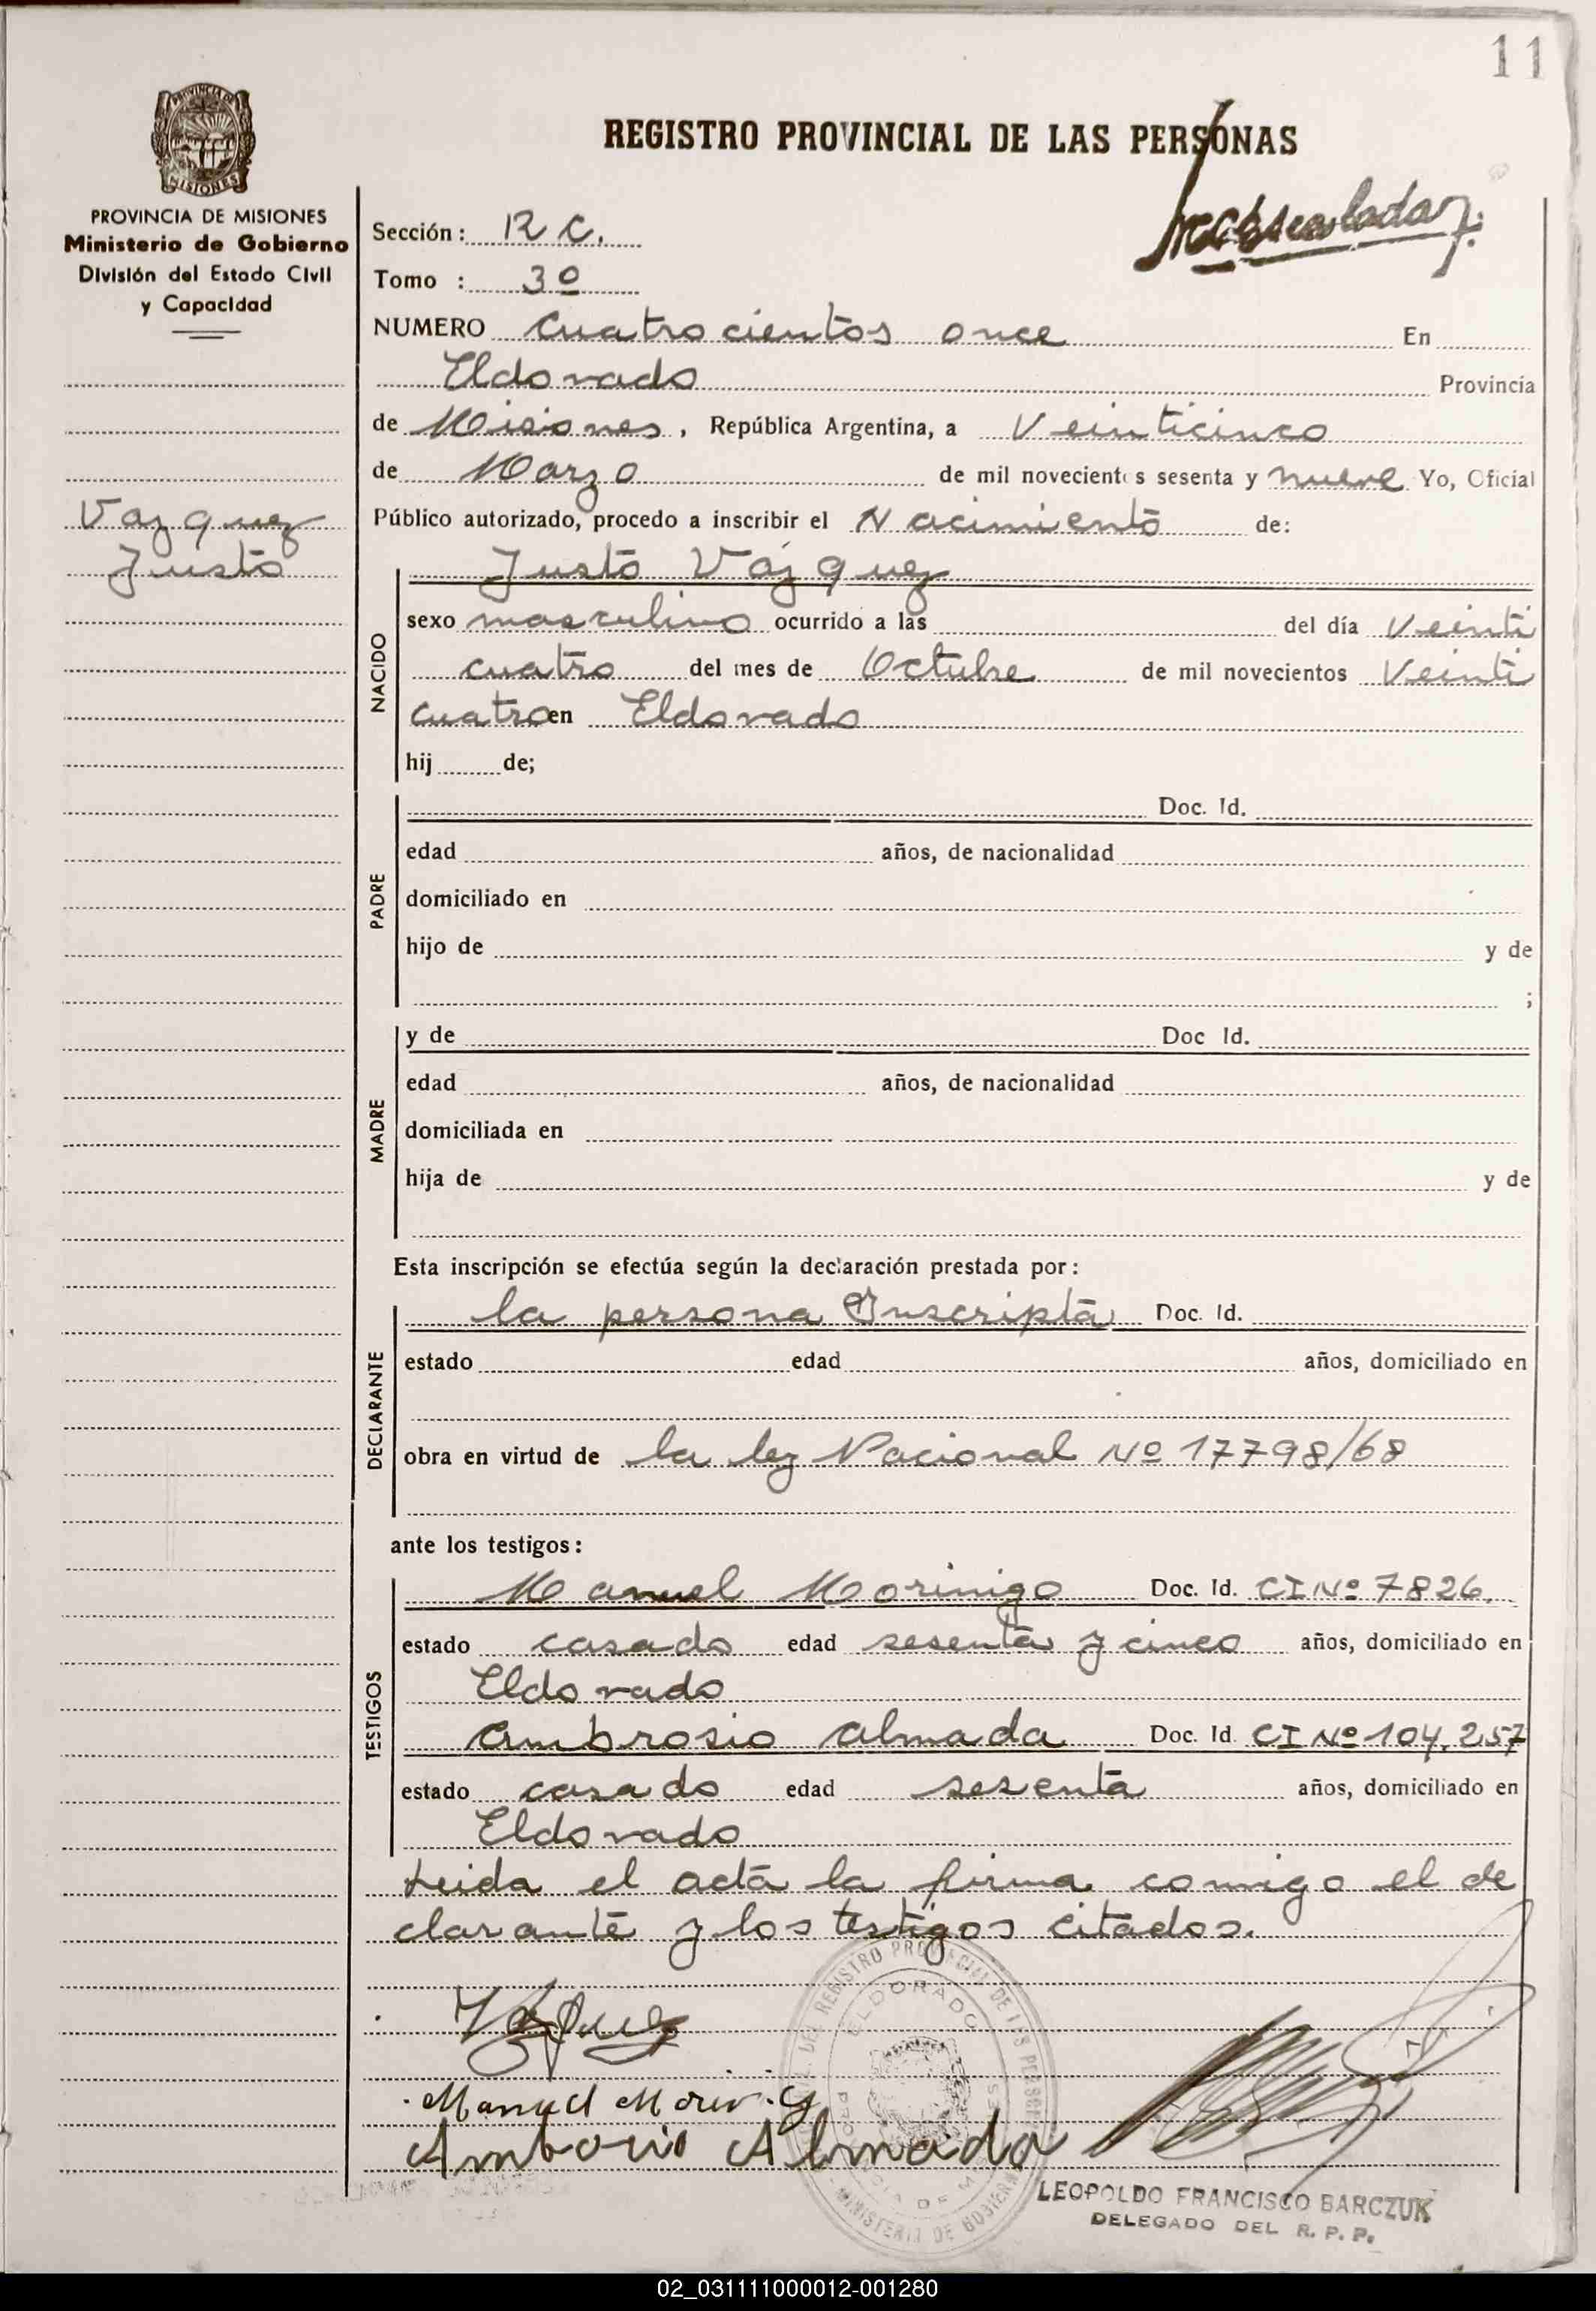 11
REGISTRO PROVINCIAL DE LAS PERSONAS
PROVINCIA DE MISIONES
Ministerio de Gobierno
División del Estado Civil
y Capacidad
Sección: R C.
Tomo : 3º
NUMERO Cuatrocientos once En
Eldorado Provincia
de Misiones, República Argentina, a Veinticinco
de Marzo de mil novecientos sesenta y nueve Yo, Oficial
Vazquez
Justo
Público autorizado, procedo a inscribir el Nacimiento de:
Justo Vázquez
NACIDO
sexo masculino ocurrido a las del día Veinti
cuatro del mes de Octubre de mil novecientos Veinti
cuatro en Eldorado
hij de;
PADRE
Doc. Id.
edad años, de nacionalidad
domiciliado en
hijo de y de
;
MADRE
y de Doc Id.
edad años, de nacionalidad
domiciliada en
hija de y de
Esta inscripción se efectúa según la declaración prestada por:
DECLARANTE
la persona Inscripta Doc. Id.
estado edad años, domiciliado en
obra en virtud de la ley Nacional Nº 17798/68
ante los testigos:
TESTIGOS
Manuel Morinigo Doc. Id. CI Nº 7826.
estado casado edad sesenta y cinco años, domiciliado en
Eldorado
Ambrosio Almada Doc. Id CI Nº 104.257
estado casado edad sesenta años, domiciliado en
Eldorado
Leida el acta la firma comigo el de
clarante y los testigos citados.
Vazquez
Manuel
Almada
REGISTRO PROVINCIAL DE LAS PERSONAS
ELDORADO
MINISTERIO DE GOBIERNO
LEOPOLDO FRANCISCO BARCZUK
DELEGADO DEL R. P. P.
02_031111000012-001280